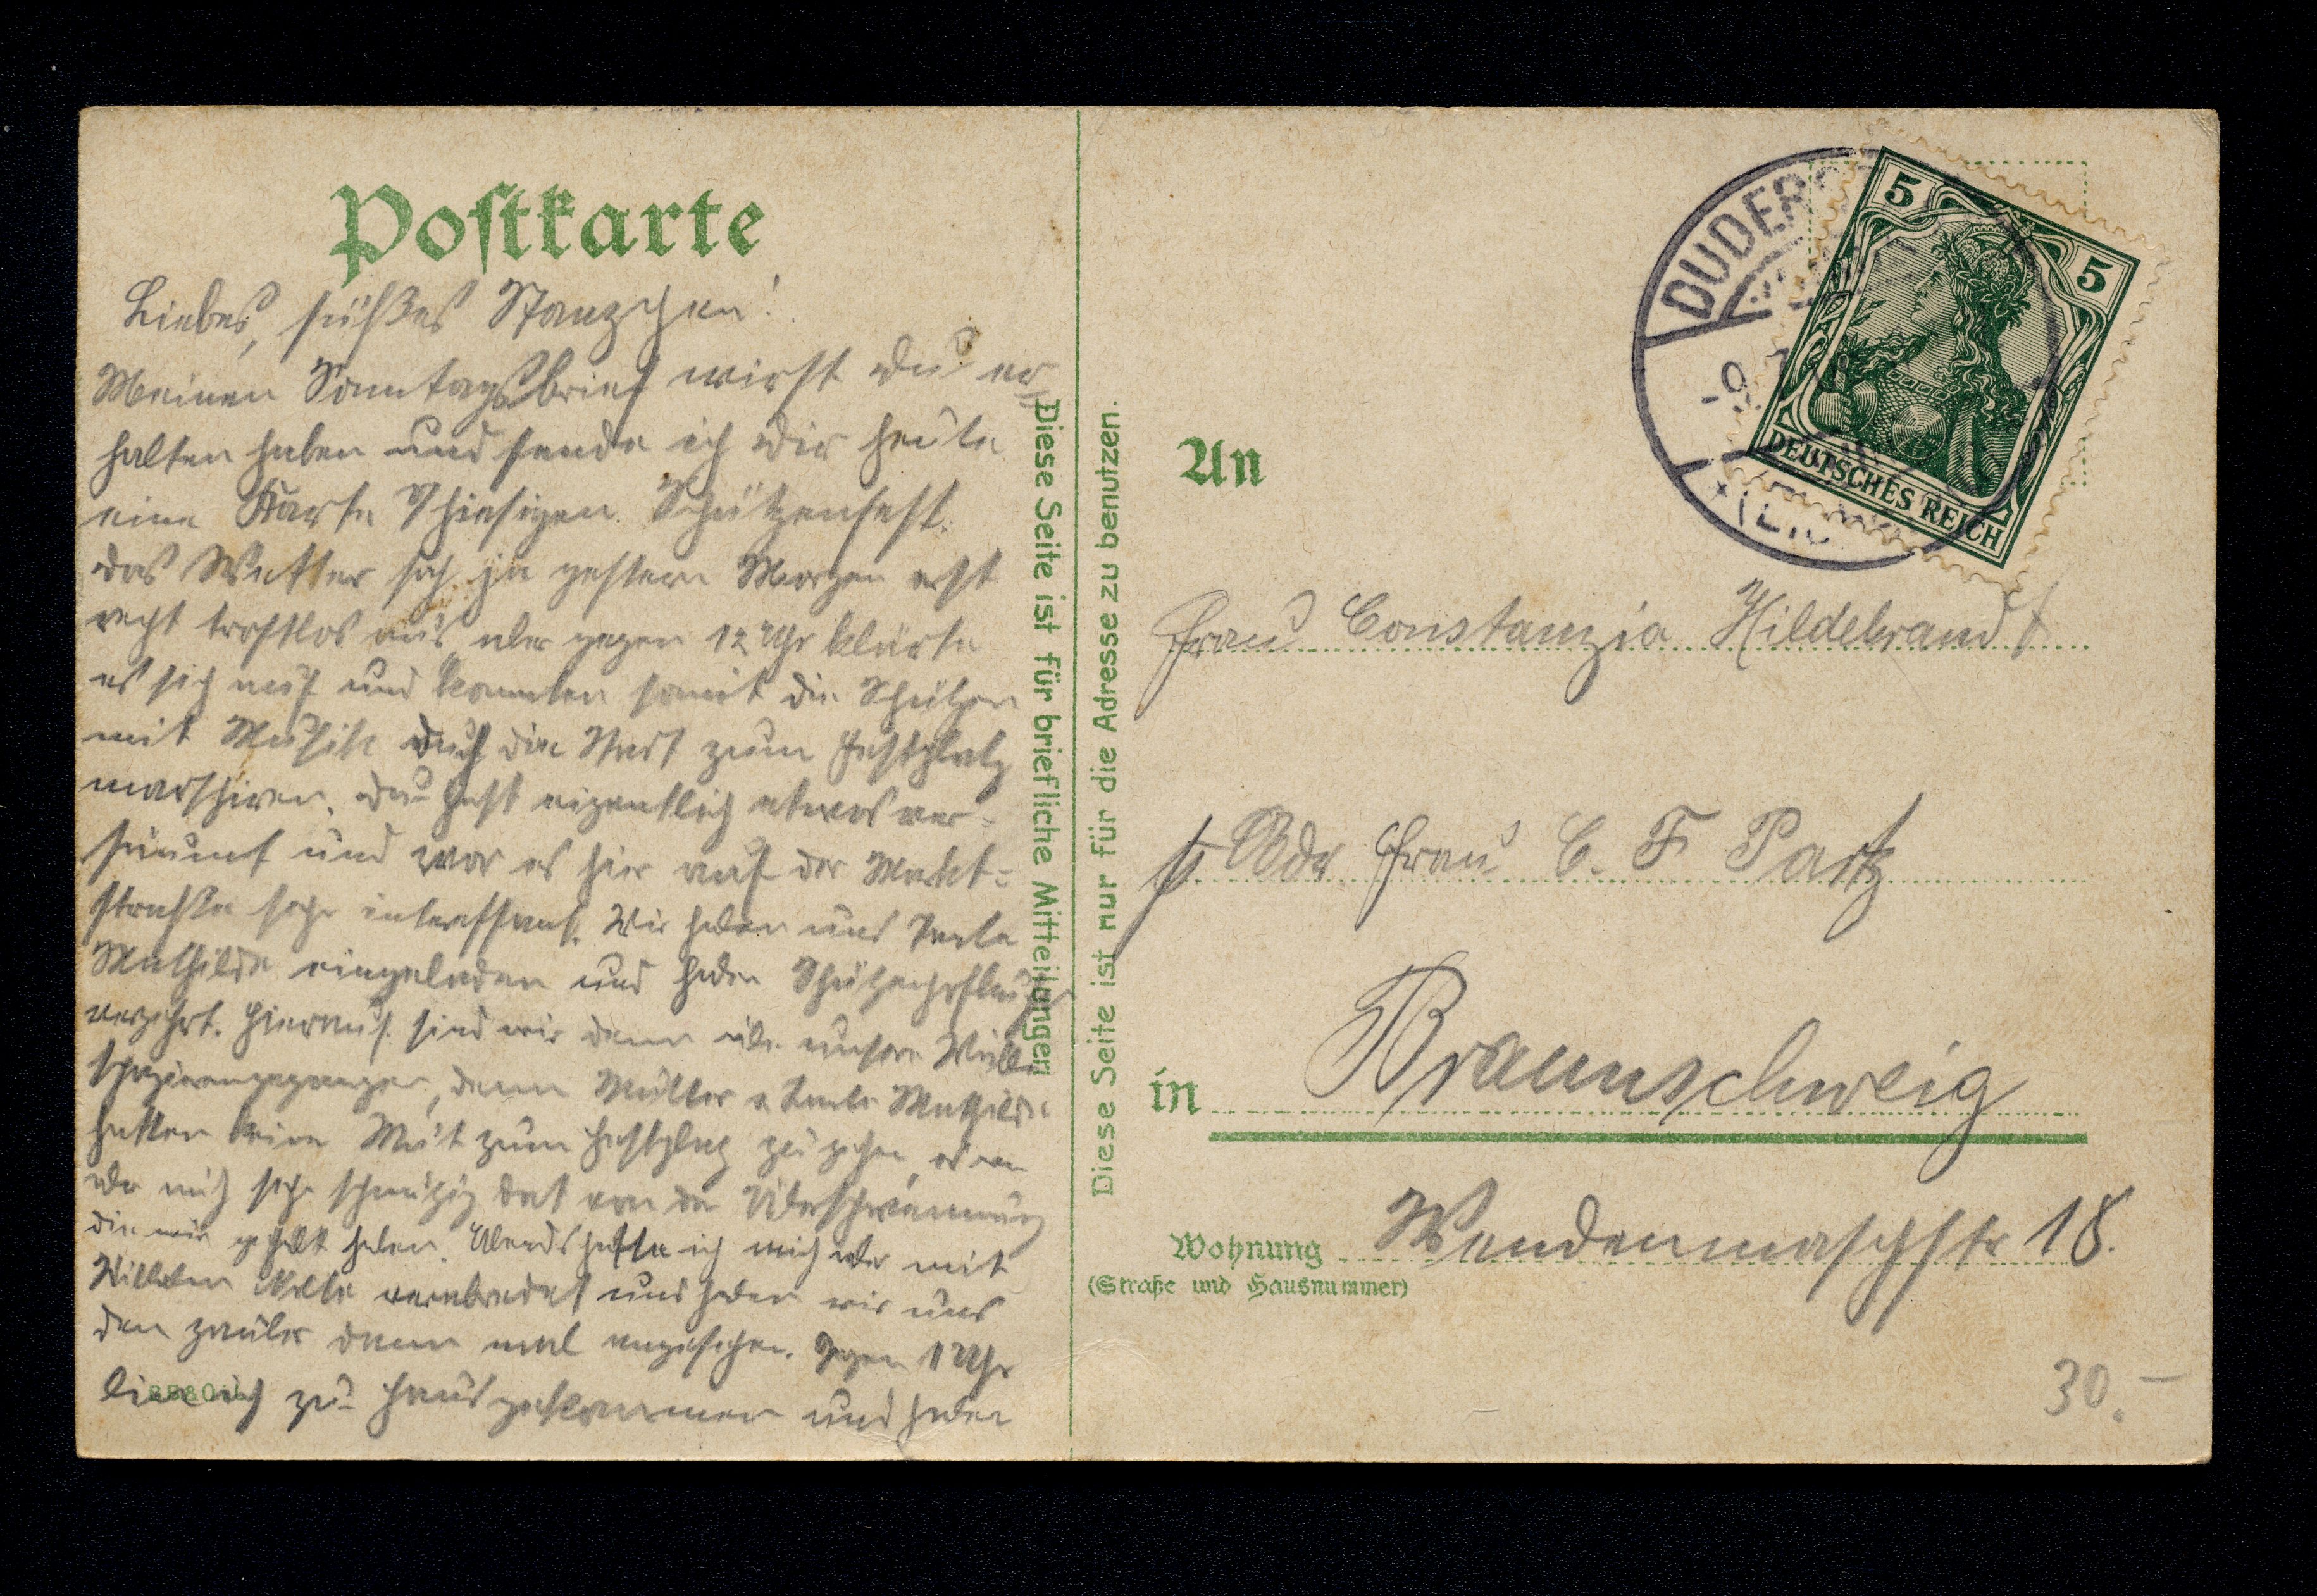 Postkarte
Liebes, süßes Stanzchen!
Meinen Sonntagsbrief wirst du er=
halten haben und sende ich dir heute
eine Karte v/ hiesigen Schützenfest.
das Wetter sah ja gestern Morgen erst
recht trostlos aus, aber gegen 12 Uhr klärte
es sich auf und konnten somit die Schützen
mit Musik durch die Stadt zum Festplatz
marschiren. du hast eigentlich etwas ver=
säumt und war es hier auf der Markt=
straße sehr interessant. Wir haben uns Tante
Mathilde eingeladen und haben
verzehrt. Hierauf sind wir dann über unsern Wall
spazierengegangen, denn Mutter u Tante Mathilde
hatten keine Mut zum Festplatz zu gehen
sehr schmutzig dort von der Überschwemmung
die wir gehabt haben. Abends hatte ich mich aber mit
Wilhelm verabredet und haben wir uns
den Zauber dann mal angesehen. Gegen 1 Uhr
bin ich zu Haus gekommen und haben
Diese Seite ist für briefliche Mitteilungen
Diese Seite ist nur für die Adresse zu benutzen.
DUDERS
5 5
DEUTSCHES REICH
An
Frau Constanzia Hildebrandt
p Adr. Frau C. F. Partz
in Braunschweig
Wohnung Wendenmaschstr 18.
(Straße und Hausnummer)
30.–